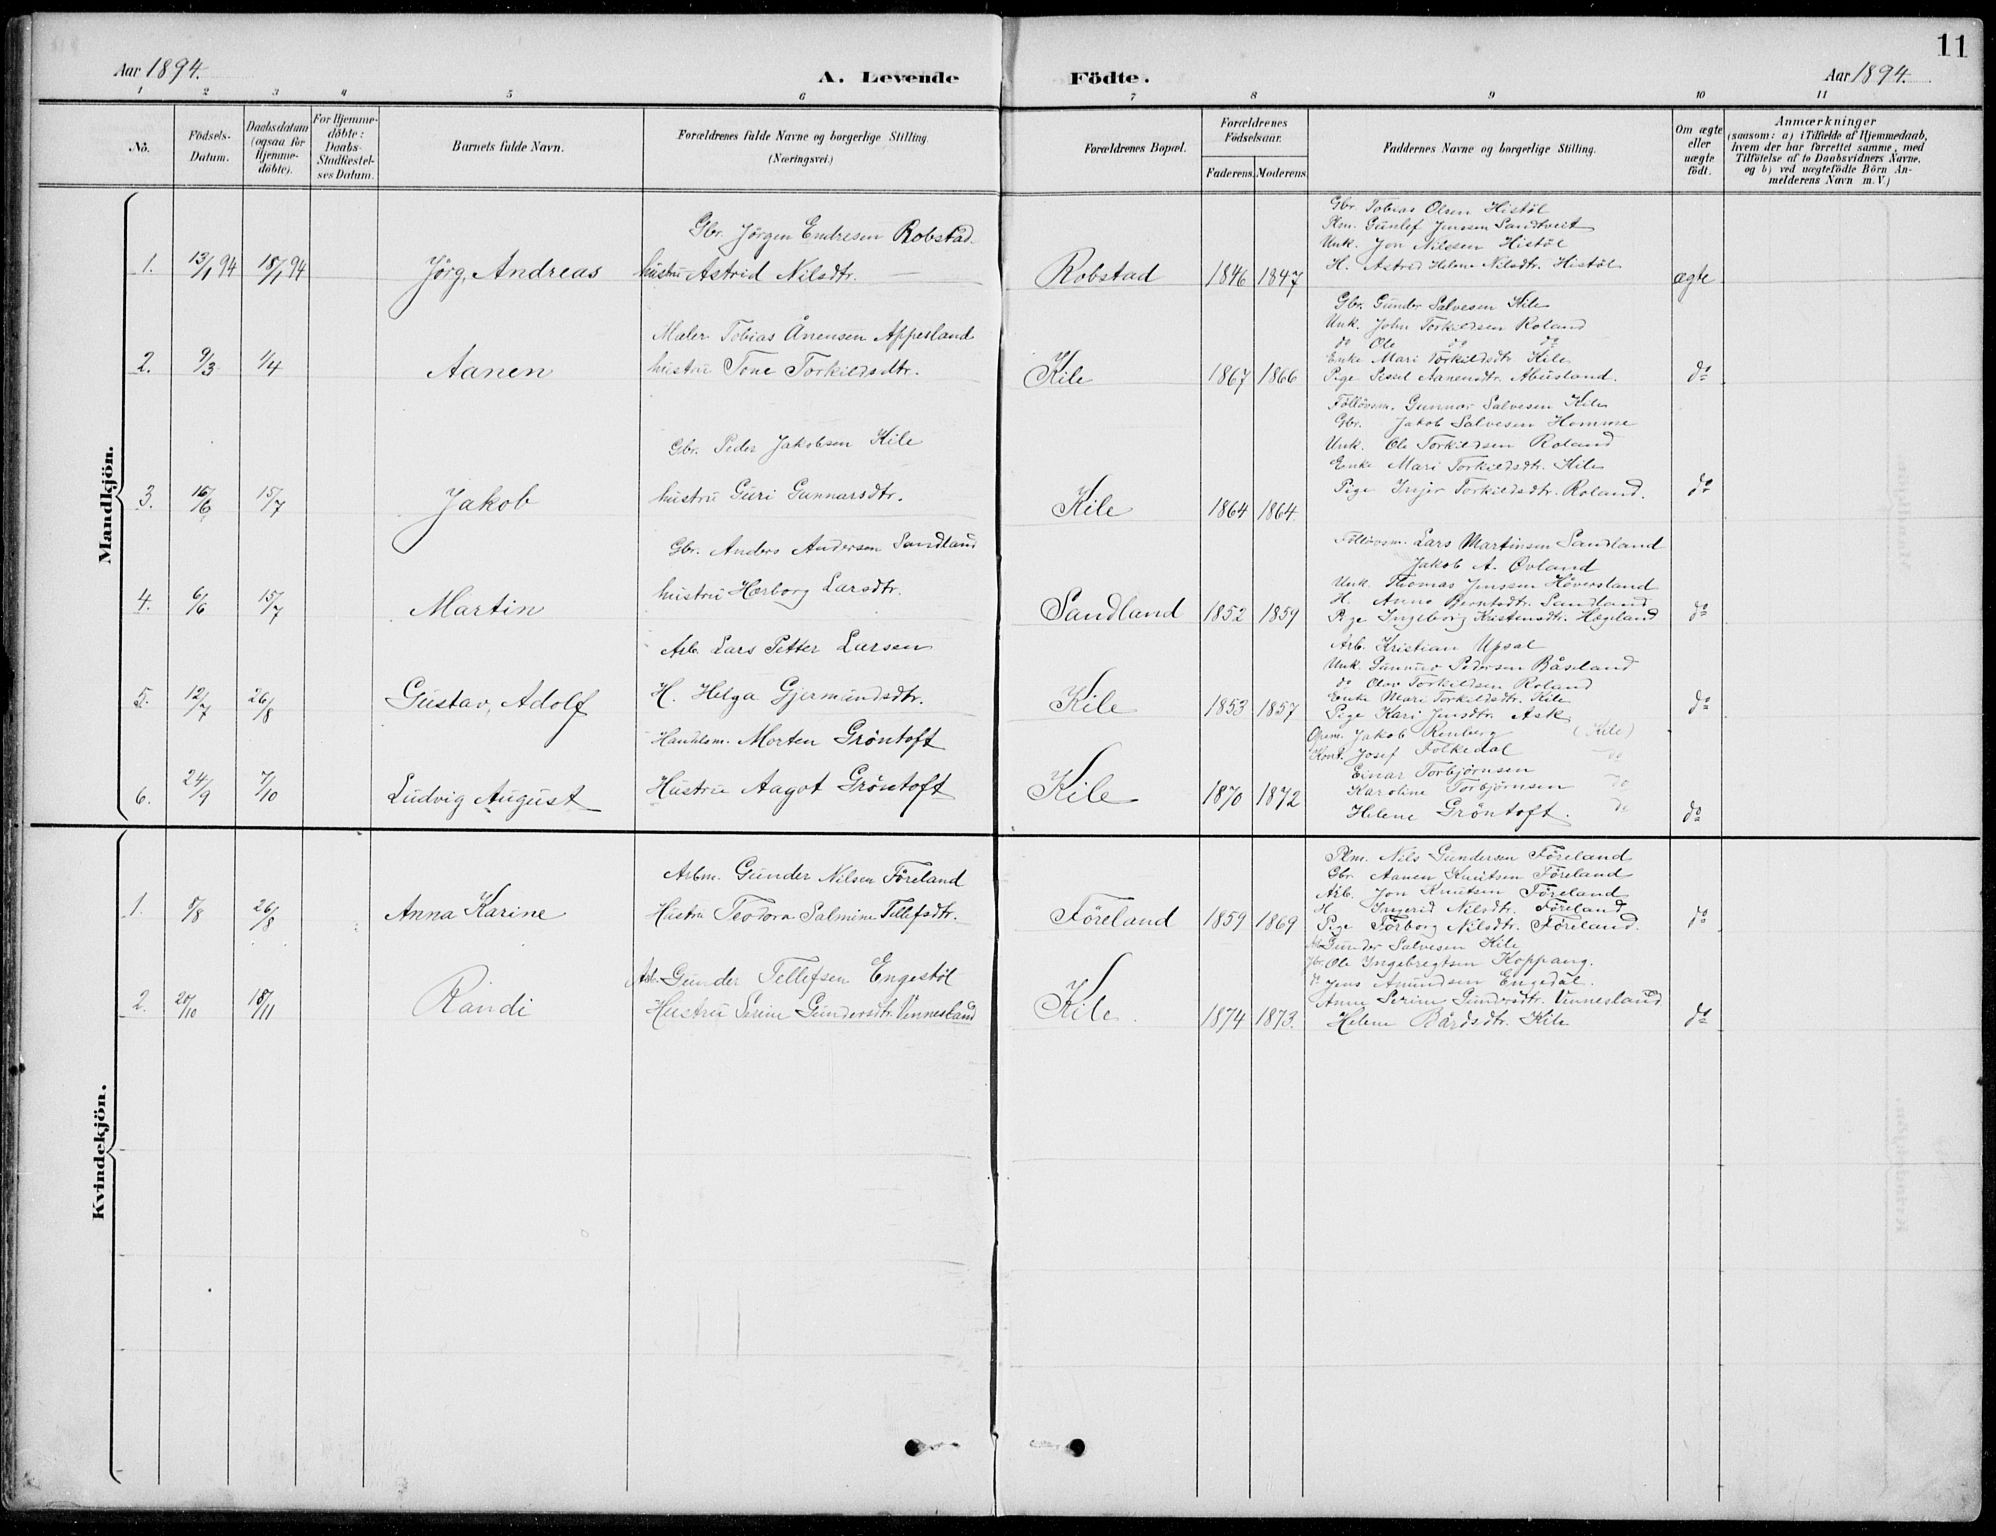 11
Aar 1894.
A. Levende Födte.
Aar 1894.
1 2 3 4 5 6 7 8 9 10 11
No.
Födsels-Datum.
Daabsdatum (ogsaa for Hjemme-döbte).
For Hjemme-döbte: Daabs-Stadfæstel-ses Datum.
Barnets fulde Navn.
Forældrenes fulde Navne og borgerlige Stilling. (Næringsvei.)
Forældrenes Bopæl.
Forældrenes Födselsaar.
Faderens. Moderens.
Faddernes Navne og borgerlige Stilling.
Om ægte eller uægte födt.
Anmærkninger
(saasom: a) i Tilfælde af Hjemmedaab, hvem der har forrettet samme, med Tilföielse af to Daabsvidners Navne, og b) ved uægtefödte Börn An-melderens Navn m. V.)
Mandkjön.
1. 13/1 94 18/1 94 Jörg, Andreas
Gbr. Jörgen Endresen Robstad
hustru Astrid Nilsdtr.
Robstad 1846 1847
Gbr. Tobias Olsen Histöl
Plm. Gunlef Jenssen Sandtveit
Unk. Jon Nilssen Histöl
H. Astrid Helene Nilsdtr. Histöl
ægte
2. 9/3 1/4 Aanen
Maler Tobias Ånensen Appesland
hustru Tone Torkildsdtr.
Kile 1867 1866
Gbr. Gunder Salvesen Kile
Unk. John Torkildsen Roland
do Ole do do
Enke Mari Torkildsdtr. Kile
Pige Sissel Aanensdtr. Abusland.
do
3. 16/6 15/7 Jakob
Gbr. Peder Jakobsen Kile
hustru Guri Gunnarsdtr.
Kile 1864 1864.
Föllövsm. Gunnar Salvesen Kile
Gbr. Jakob Salvesen Homme
Unk. Ole Torkildsen Roland
Enke Mari Torkildsdtr. Kile
Pige Injer Torkildsdtr. Roland.
do
4. 6/6 15/7 Martin
Gbr. Anders Andersen Sandland
hustru Hærborg Larsdtr.
Sandland 1852 1859
Föllövsm. Lars Martinsen Sandland
Jakob A. Ovland
Unk. Thomas Jenssen Höversland
H. Anne Berntsdtr. Sandland
Pige Ingeborg Kristensdtr. Hægeland
do
5. 12/7 26/8 Gustav, Adolf
Arb. Lars Petter Larsen
H. Helga Gjermundsdtr.
Kile 1853 1857
Arb. Kristian Upsal
Unk. Gunnuv Pedersen Båseland
do Olav Torkildsen Roland
Enke Mari Torkildsdtr. Kile
Pige Kari Jensdtr. Ask
do
6. 24/9 7/10 Ludvig August
Handelsm. Morten Gröntoft
Hustru Aagot Gröntoft
Kile 1870 1872
Jakob Renberg (Kile)
Kont. Josef Folkedal do
Einar Torbjörnsen
Karoline Torbjörnsen do
Helene Gröntoft. do
do
Kvindekjön.
1. 8/8 26/8 Anna Karine
Arbm. Gunder Nilsen Föreland
Hustru Teodora Salmine Tellefsdtr.
Föreland 1859 1869
Plm. Nils Gundersen Föreland
Gbr. Aanen Knutsen Föreland
Arb. Jon Knutsen Föreland
H. Ingerid Nilsdtr. Föreland
Pige Törborg Nilsdtr. Föreland.
do
2. 20/10 18/11 Randi
Arb. Gunder Tellefsen Engestöl
Hustru Serine Gundersdtr. Vinnesland
Kile. 1874 1873.
Arb. Gunder Salvesen Kile
Gbr. Ole Ingebregtsen Koppang.
do Jens Amundsen Engedal.
Anne Serine Gundersdtr. Vinnesland
Helene Bårdsdtr. Kile
do